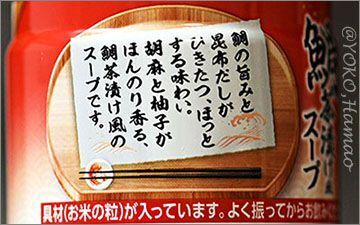 鯛の旨みと
昆布だしが
ひきたつ、ほっと
する味わい。
胡麻と柚子が
ほんのり香る、
鯛茶漬け風の
スープです。
鯛茶漬け風
スープ
具材(お米の粒)が入っています。よく振ってからお飲み
@YOKO,Hamao